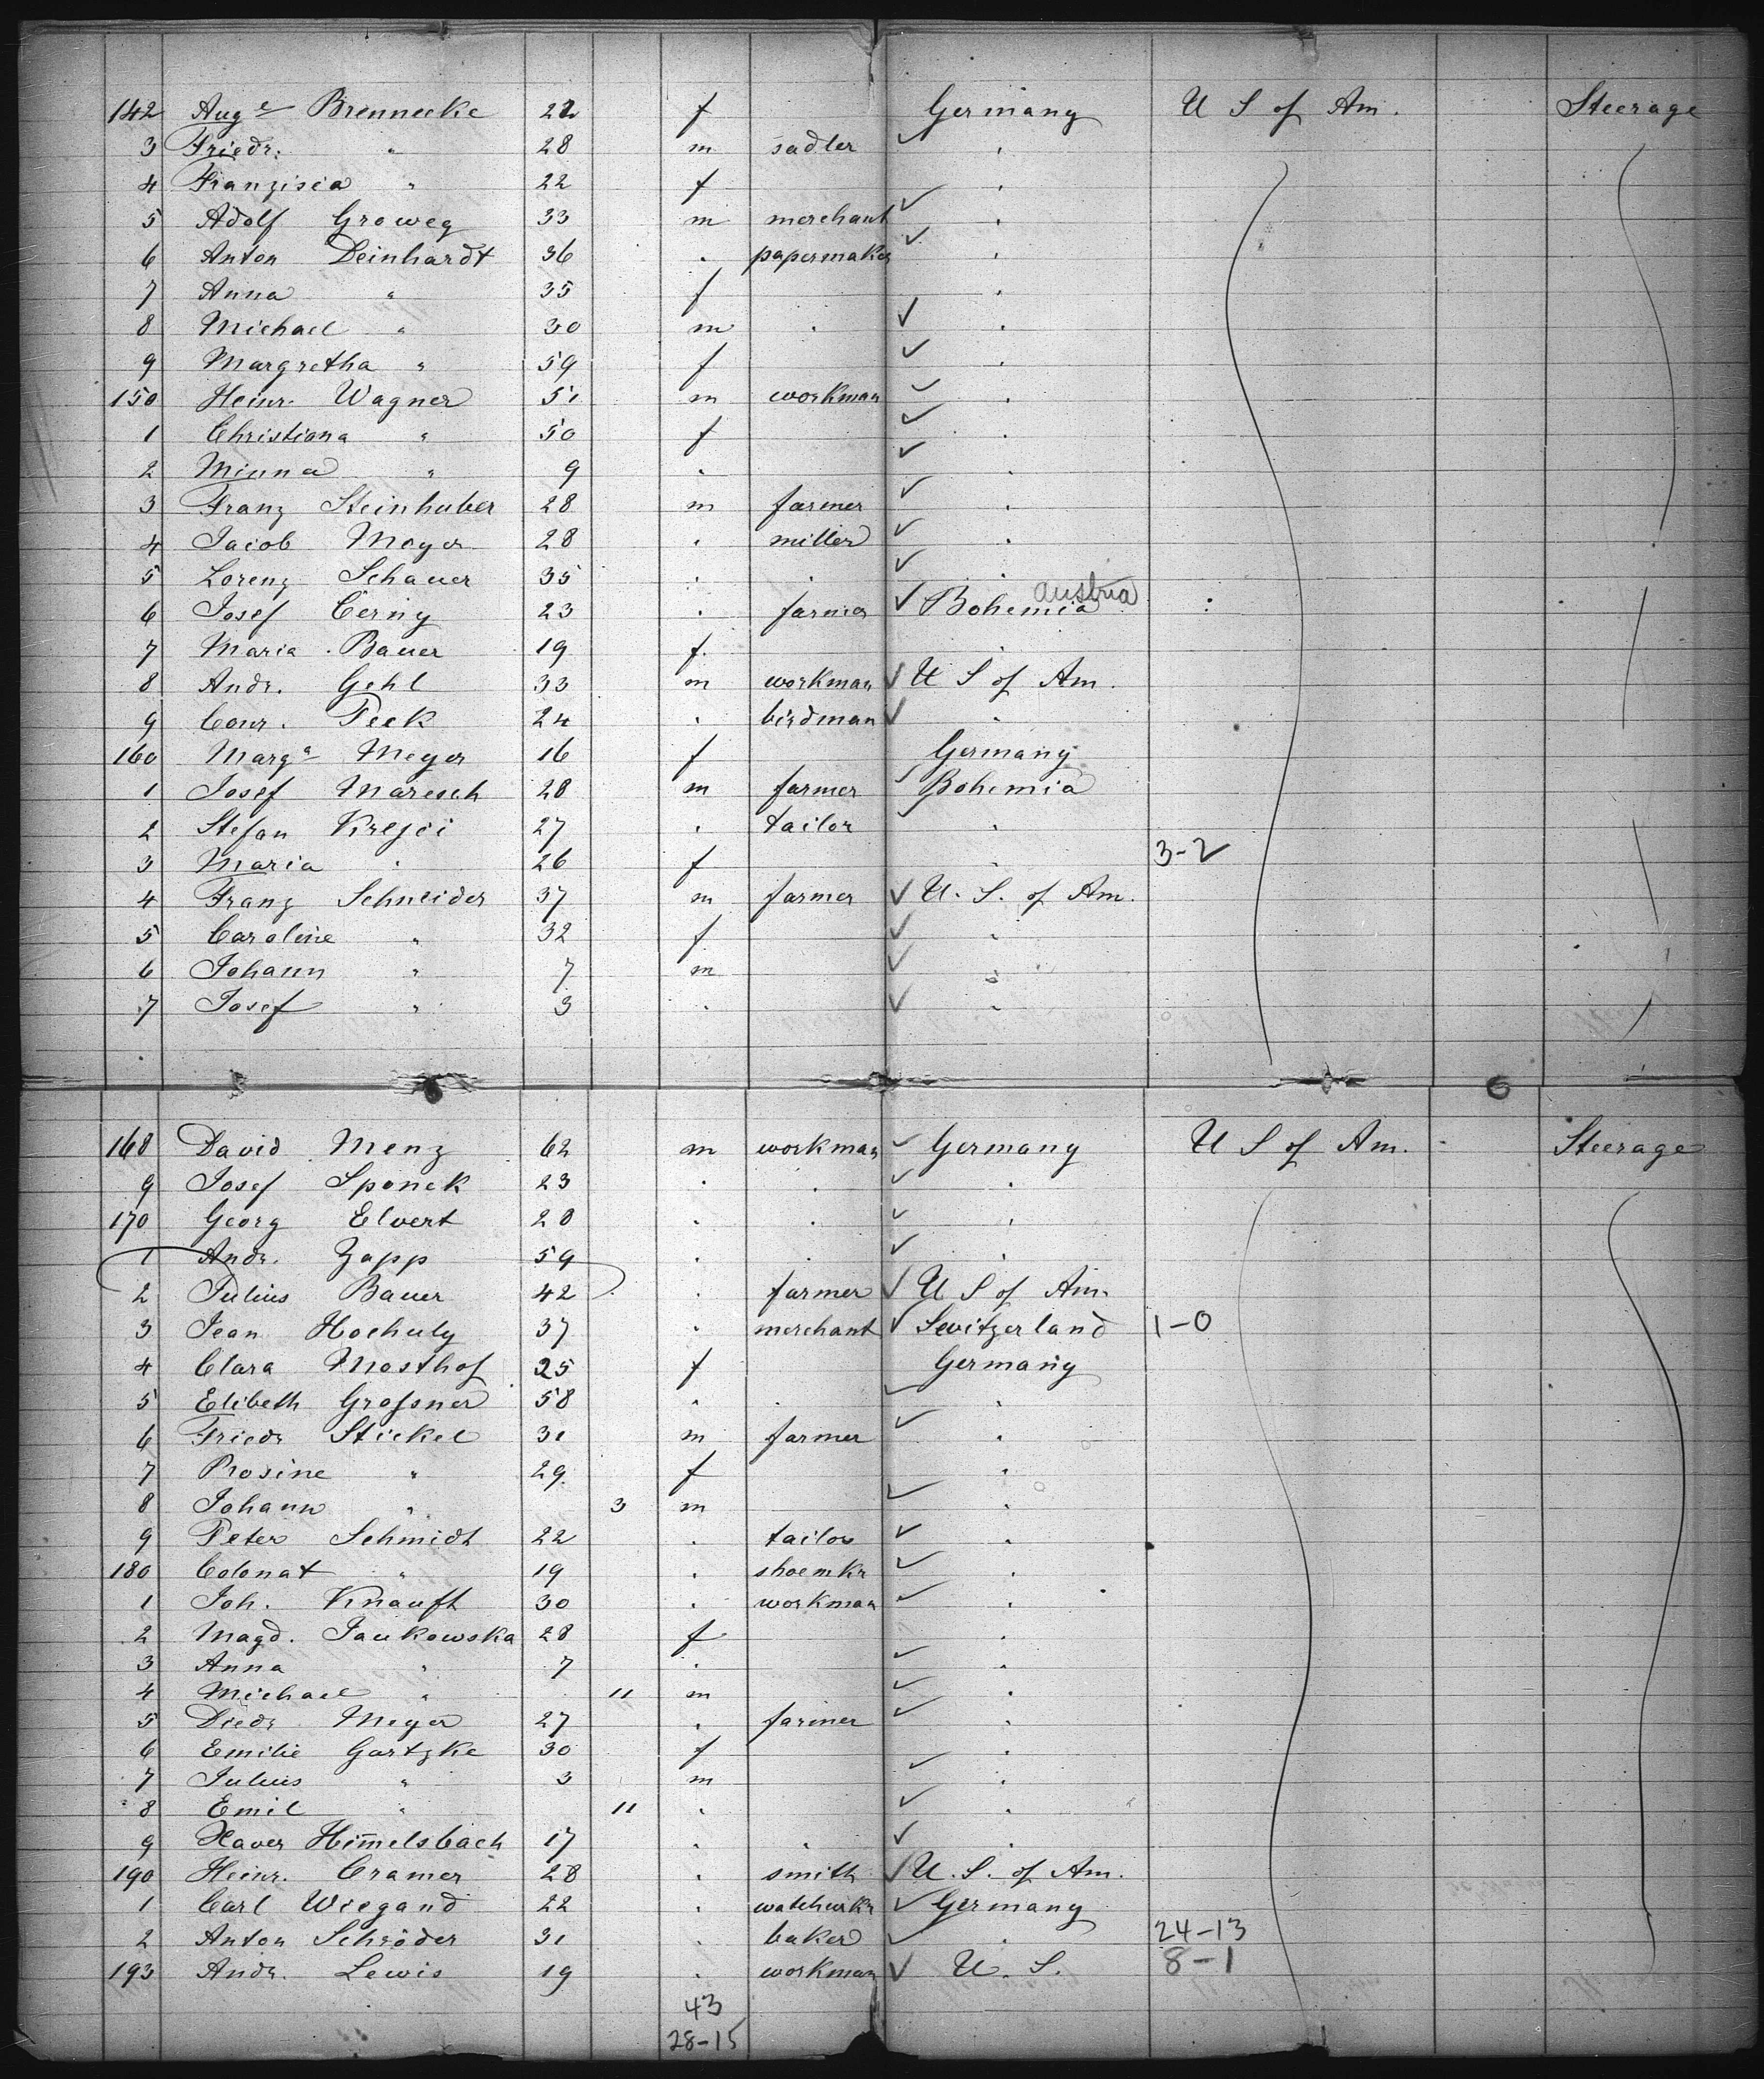 142 Aug e Brennecke 22 f Germany U S of Am. Steerage
3 Friedr. " 28 m sadler "
4 Franzisca " 22 f "
5 Adolf Groweg 33 m merchant "
6 Anton Deinhardt 36 " papermaker "
7 Anna " 35 f "
8 Michael " 30 m " "
9 Margretha " 59 f "
150 Heinr. Wagner 51 m workman "
1 Christiana " 50 f "
2 Minna " 9 " "
3 Franz Steinhuber 28 m farmer "
4 Jacob Meyer 28 " miller "
5 Lorenz Schauer 35 " " "
austria
6 Josef Cerny 23 " farmer Bohemia :
7 Maria Bauer 19 f. "
8 Andr. Gehl 33 m workman U S of Am.
9 Conr. Peek 24 " birdman "
160 Marg a Meyer 16 f Germany
1 Josef Maresch 28 m farmer Bohemia
2 Stefan Krejci 27 " tailor "
3 Maria " 26 f " 3-2
4 Franz Schneider 37 m farmer U. S. of Am.
5 Caroline " 32 f "
6 Johann " 7 m "
7 Josef " 3 " "
168 David Menz 62 m workman Germany U S of Am. Steerage
9 Josef Sponek 23 " " "
170 Georg Elvert 28 " " "
1 Andr. Zapp 59 " " "
2 Julius Bauer 42 " farmer U S of Am.
3 Jean Hochuly 37 " merchant Switzerland 1-0
4 Clara Mosthof 25 f Germany
5 Elibeth Grossner 58 " "
6 Friedr Stickel 31 m farmer "
7 Rosine " 29. f "
8 Johann " 3 m "
9 Peter Schmidt 22 " tailor "
180 Colonat " 19 " shoemkr "
1 Joh. Knauft 30 " workman "
2 Magd. Jankowska 28 f "
3 Anna " 7 " "
4 Michael " 11 m "
5 Diedr Meyer 27 " farmer "
6 Emilie Gartzke 30 f "
7 Julius " 3 m "
8 Emil " 11 " "
9 Xaver Himmelsbach 17 " " "
190 Heinr. Cramer 28 " smith U. S. of Am.
1 Carl Wiegand 22 " Germany
2 Anton Schröder 31 " baker " 24-13
193 Andr. Lewis 19 " workman U. S. 8-1
43
28-15